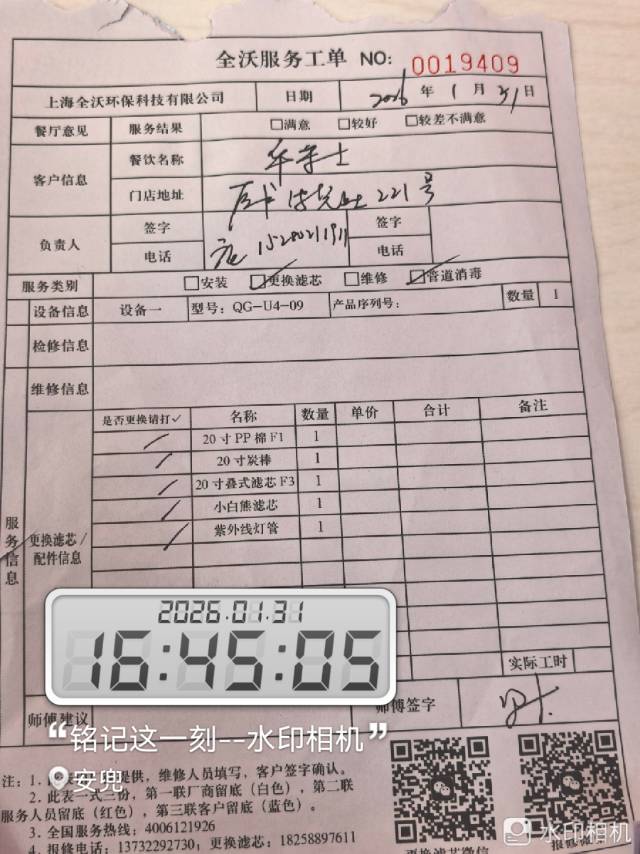 全沃服务工单 NO: 0019409
上海全沃环保科技有限公司 日期 2026 年 1 月 31 日
餐厅意见 服务结果 □满意 □较好 □较差不满意
客户信息 餐饮名称
门店地址 221号
负责人 签字 签字
电话 15280211911 电话
服务类别 □安装 ☑更换滤芯 □维修 ☑管道消毒
设备信息 设备一 型号: QG-U4-09 产品序列号: 数量 1
检修信息
维修信息
是否更换请打✓ 名称 数量 单价 合计 备注
20寸PP棉F1 1
20寸炭棒 1
20寸叠式滤芯F3 1
小白熊滤芯 1
紫外线灯管 1
服务信息
更换滤芯/
配件信息
2026.01.31
16:45:05
实际工时
师傅建议 师傅签字
“铭记这一刻--水印相机”
安兜
注: 1. 提供, 维修人员填写, 客户签字确认。
2. 此表一式三份, 第一联厂商留底 (白色), 第二联
服务人员留底 (红色), 第三联客户留底 (蓝色)。
3. 全国服务热线: 4006121926
4. 报修电话: 13732292730; 更换滤芯: 18258897611
更换滤芯微信 报修微信
水印相机